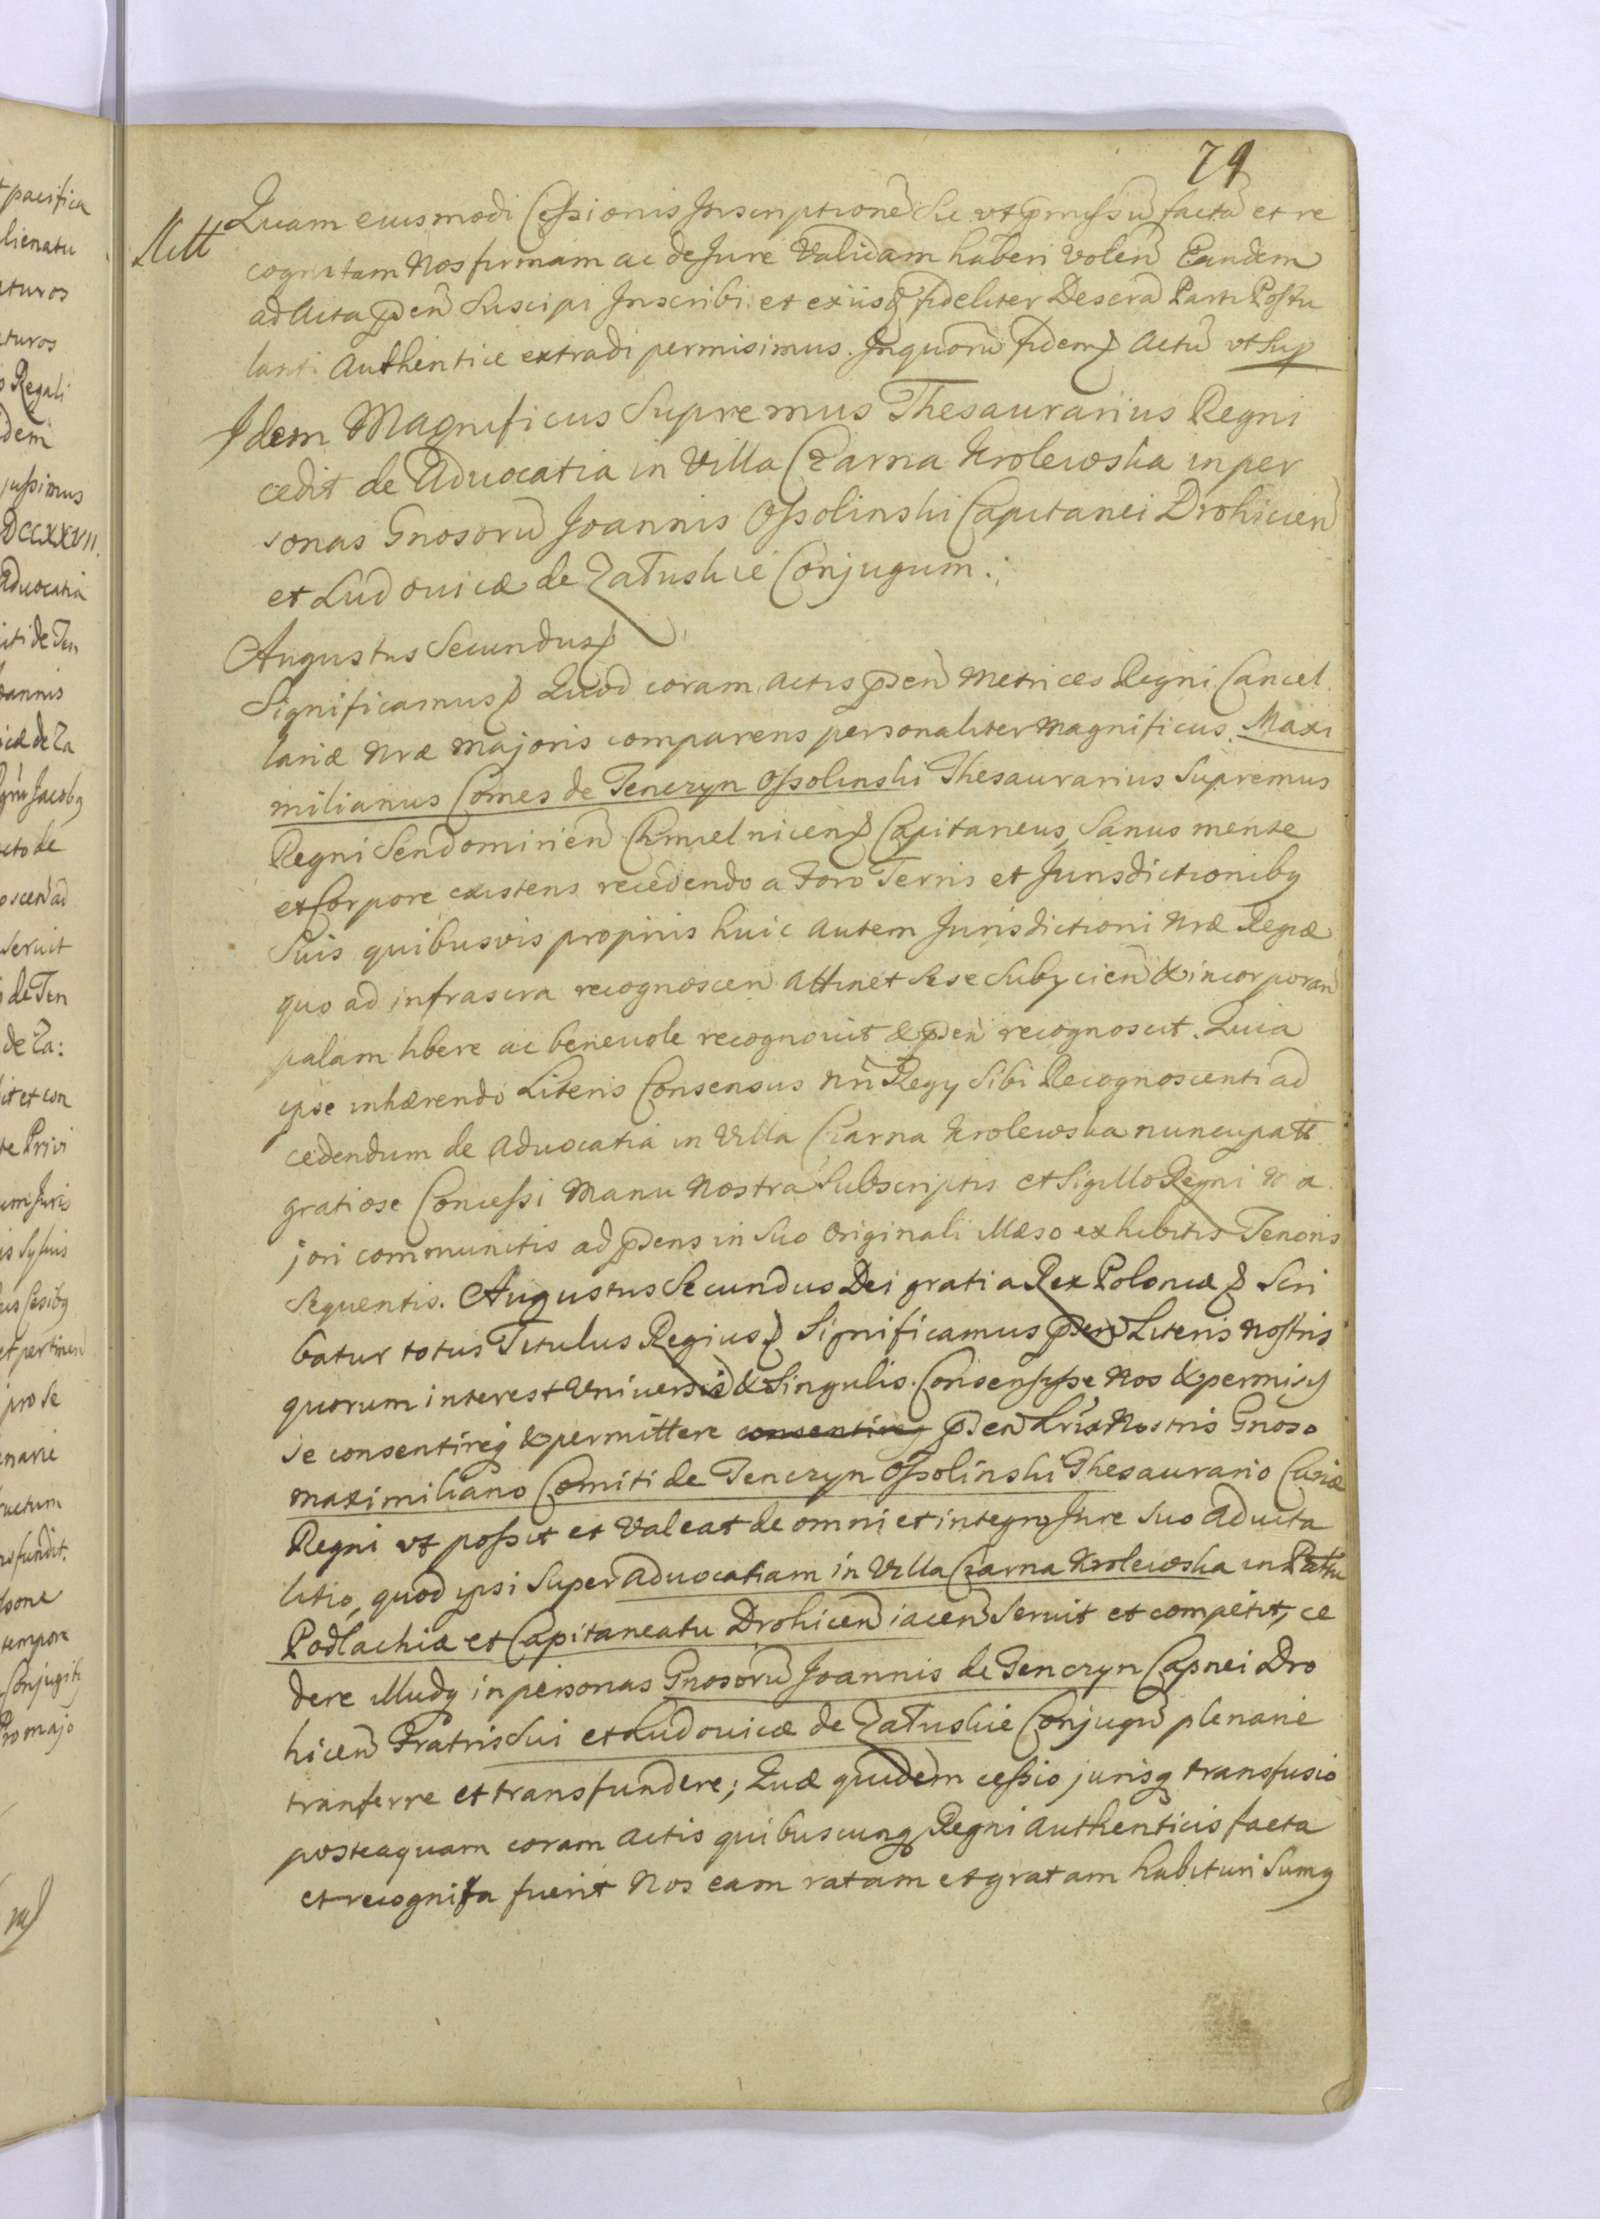 79
Quam eiusmodi Cessionis Inscriptionē Sic vt p̄missū factā et re
cognitam Nos firmam ac de Jure Validam haberi volen̄ Eandem
ad Acta p̄den̄ Suscipi Inscribi et ex iisq fideliter Descrā Parti Postu
lanti Authentice extradi permisimus. In quorū fidem Actū vt Sup
Idem Magnificus Supremus Thesaurarius Regni
cedit de Advocatia in Villa Czarna Krolewska in per
sonas Gnosorū Joannis Ossolinski Capitanei Drohicien̄
et Ludovicæ de Załuskie Conjugum.
Augustus Secundus
Significamus Quod coram Actis p̄den̄ Metrices Regni Cancel
lariæ Nræ Majoris comparens personaliter Magnificus Maxi
milianus Comes de Tenczyn Ossolinski Thesaurarius Supremus
Regni Sendomirien̄ Chmielnicen̄ Capitaneus, Sanus mente
et Corpore existens recedendo a Foro Terris et Jurisdictionibq
Suis quibusvis proprijs huic autem Jurisdictioni Nræ Regiæ
quo ad infrascra recognoscen̄ Attinet Sese Subycien̄ & incorporan̄
palam libere ac benevole recognovit & p̄den̄ recognoscit. Quia
ipse inhærendo Literis Consensus Nr̄i Regy Sibi Recognoscenti ad
cedendum de Advocatia in Villa Czarna Krolewska nuncupatt
gratiose Concessi Manu Nostra Subscriptis et Sigillo Regni Ma
jori communitis ad p̄dens in Suo Originali Illæso exhibitis Tenoris
Sequentis. Augustus Secundus Dei gratia Rex Poloniæ Scri
batur totus Titulus Regius Significamus p̄den̄ Literis Nostris
quorum interest Vniversis & Singulis. Consensysse Nos & permisy
se consentireq & permittere consentireq p̄den̄ Lris Nostris Gnoso
Maximiliano Comiti de Tenczyn Ossolinski Thesaurario Curiæ
Regni vt possit et Valeat de omni et integro Jure Suo Advita
litio, quod ipsi Super Advocatiam in Villa Czarna Krolewska in Pattu
Podlachiæ et Capitaneatu Drohicen̄ iacen̄ Servit et competit, ce
dere Illudq in personas Gnosorū Joannis de Tenczyn Capnei Dro
hicen̄ Fratris Sui et Ludovicæ de Załuskie Conjugū plenarie
tranferre et transfundere; Quæ quidem cessio jurisq transfusio
posteaquam coram Actis quibuscunq Regni Authenticis facta
et recognita fuerit Nos eam ratam et gratam habituri Sumq